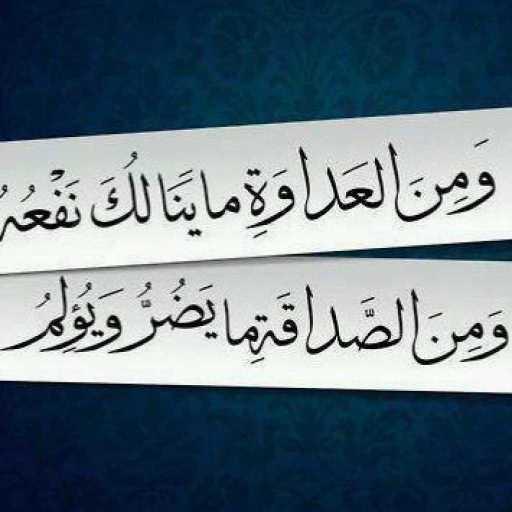 وَمِنَ العَداوَةِ ما يَنَالُكَ نَفْعُهُ
وَمِنَ الصَّداقَةِ ما يَضُرُّ وَيُؤلِمُ